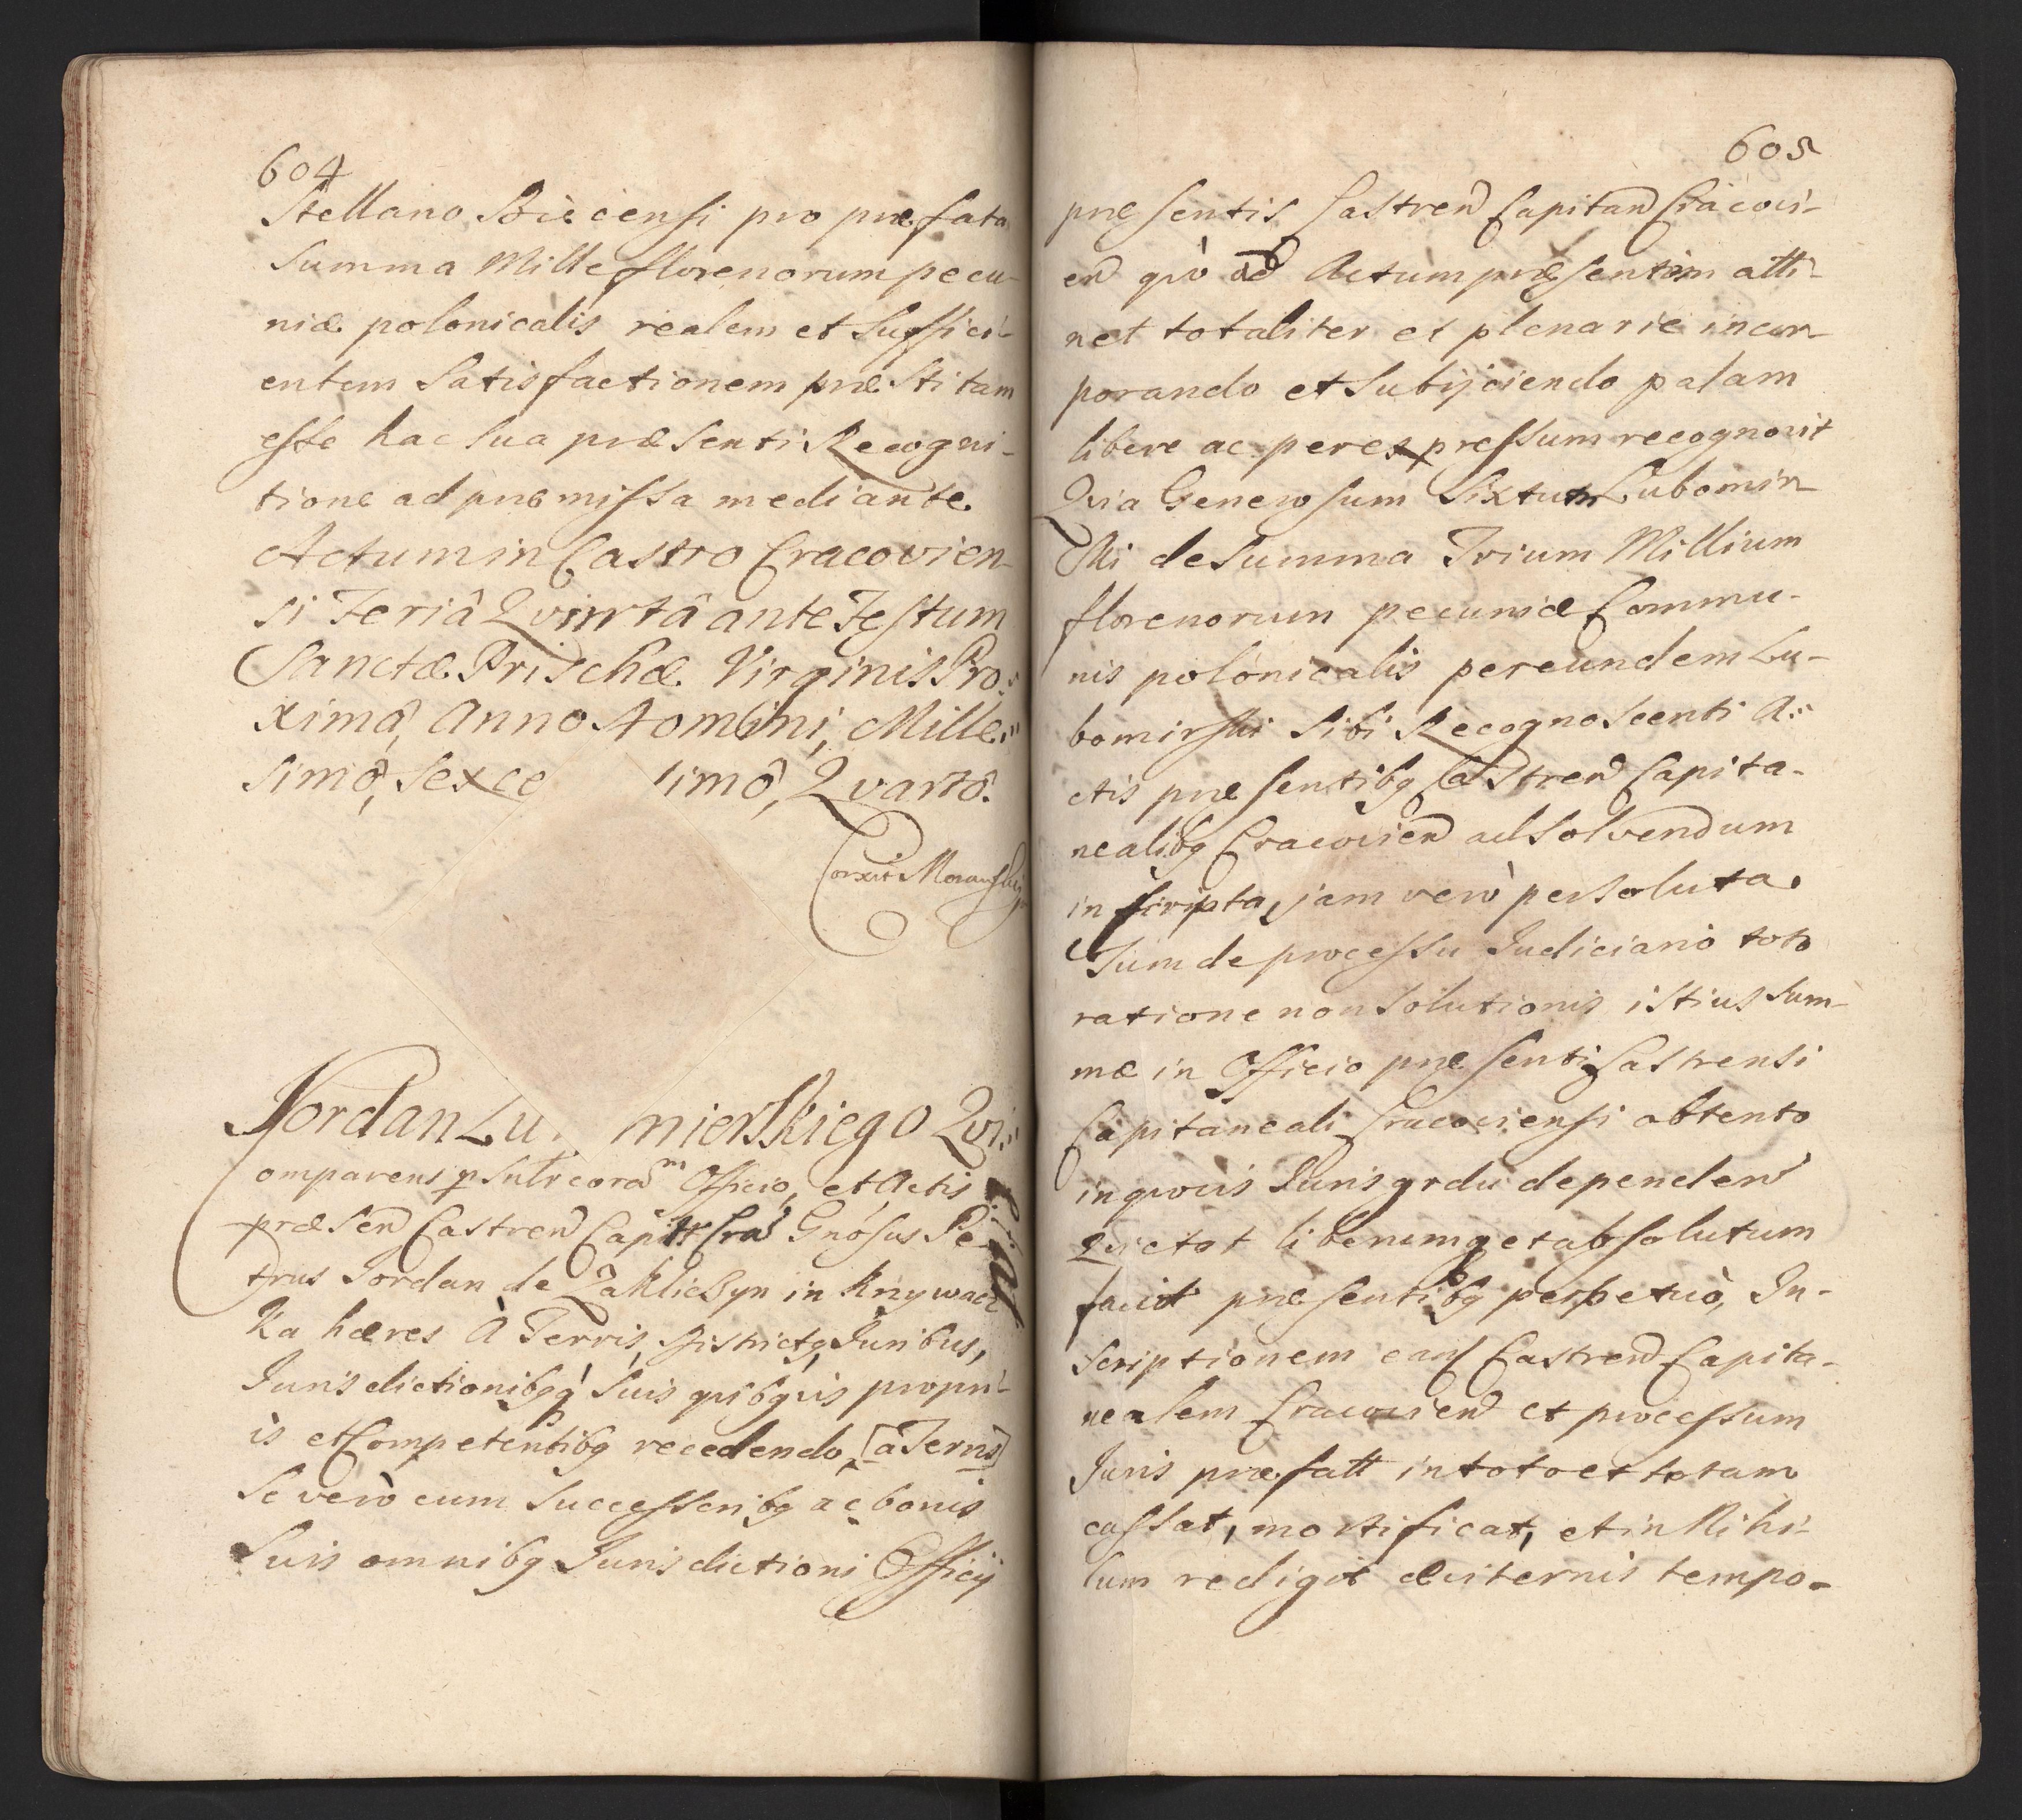 604
Stellano Bieicensi pro præfata
Summa Mille florenorum pecu-
niæ polonicalis realem et Suffici-
entem Satisfactionem præstitam
esse hac sua præsenti Recogni-
tione ad præmissa mediante
Actum in Castro Cracovien-
si Feriâ Qvintâ ante Festum
Sanctæ Prischæ Virginis Pro-
ximâ, Anno Domini, Mille-
simô, Sexce simô, Qvartô.
Corxit
Jordan Lu mierskiego Qvi-
etat
omparens psnlr coram Officio, et Actis
præsen Castren Capit Cra Gnosus Pe-
trus Jordan de Zakliczyn in
ka hæres à Terris, districtq Juribus,
Jurisdictionibqq suis qvibqvis propri-
is et Competentibq recedendo, [à Terris]
Se verò cum Successoribq ac bonis
Suis omnibq Jurisdictioni Officij
605
præsentis Castren Capitan Cracovi-
en qvò ad Actum præsentem atti-
net totaliter et plenarie incor-
porando et Subijciendo palam
libere ac per expressum recognovit
Qvia Generosum Sixtum Lubomir-
ski de Summa Trium Millium
florenorum pecuniæ Commu-
nis polonicalis per eundem Lu-
bomirski Sibi Recognoscenti A-
ctis præsentibq Castren Capita-
nealibq Cracovien ad Solvendum
inscripta, jam verò persoluta
Tum de processu Judiciario toto
ratione non Solutionis istius Sum-
mæ in Officio præsenti Castrensi
Capitaneali Cracoviensi obtento
in qvovis Juris grdu dependen
Qvietat liberumq et absolutum
facit præsentibq perpetuò, In-
scriptionem eand Castren Capita-
nealem Cracovien et processum
Juris præfatt in toto et totam
cassat, mortificat, et in Nihi-
lum redigit æviternis tempo-